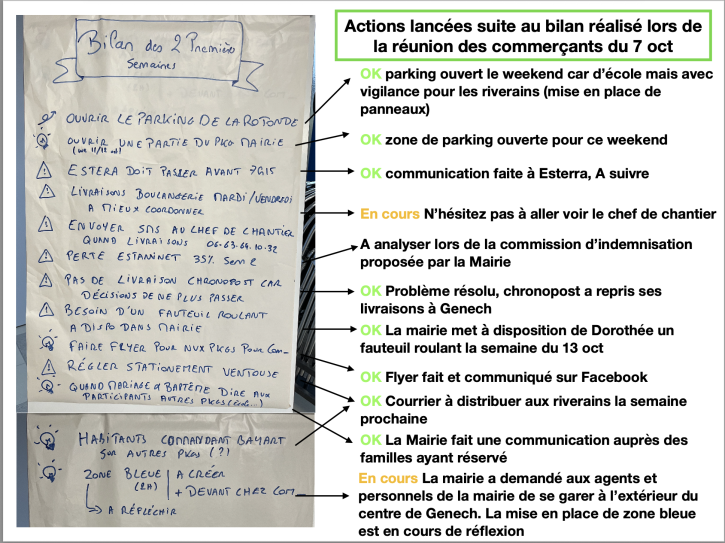 Bilan des 2 Premières
Semaines
OUVRIR LE PARKING DE LA ROTONDE
OUVRIR UNE PARTIE DU PKG MAIRIE
(we 11/12 oct)
ESTERA DOIT PASSER AVANT 7G15
LIVRAISONS BOULANGERIE MARDI/VENDREDI
A MIEUX COORDONNER
ENVOYER SMS AU CHEF DE CHANTIER
QUAND LIVRAISONS 06.63.64.10.32
PERTE ESTAMINET 35% Sem 2
PAS DE LIVRAISON CHRONOPOST CAR
DÉCISIONS DE NE PLUS PASSER
BESOIN D'UN FAUTEUIL ROULANT
A DISPO DANS MAIRIE
FAIRE FLYER POUR NUX PKGS POUR COM_
RÉGLER STATIONEMENT VENTOUSE
QUAND MARIAGE & BAPTÊME DIRE AUX
PARTICIPANTS AUTRES PKGS (école...)
HABITANTS COMMANDANT BAYART
SUR AUTRES PKGS (?)
ZONE BLEUE A CRÉER
(2H) + DEVANT CHEZ COM_
A RÉFLÉCHIR
Actions lancées suite au bilan réalisé lors de
la réunion des commerçants du 7 oct
OK parking ouvert le weekend car d'école mais avec
vigilance pour les riverains (mise en place de
panneaux)
OK zone de parking ouverte pour ce weekend
OK communication faite à Esterra, A suivre
En cours N'hésitez pas à aller voir le chef de chantier
A analyser lors de la commission d'indemnisation
proposée par la Mairie
OK Problème résolu, chronopost a repris ses
livraisons à Genech
OK La mairie met à disposition de Dorothée un
fauteuil roulant la semaine du 13 oct
OK Flyer fait et communiqué sur Facebook
OK Courrier à distribuer aux riverains la semaine
prochaine
OK La Mairie fait une communication auprès des
familles ayant réservé
En cours La mairie a demandé aux agents et
personnels de la mairie de se garer à l'extérieur du
centre de Genech. La mise en place de zone bleue
est en cours de réflexion